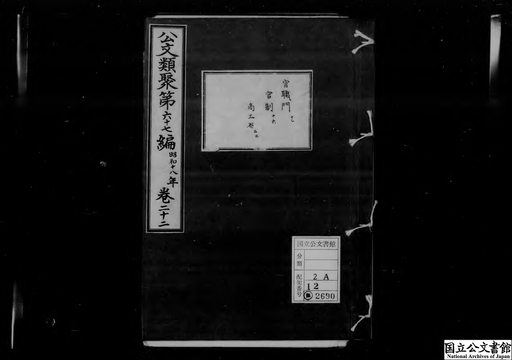 公文類聚第六十七編昭和十八年巻二十二
官職門
官制
国立公文書館
分類
配架番号
2 A
12
2690
国立公文書館
National Archives of Japan